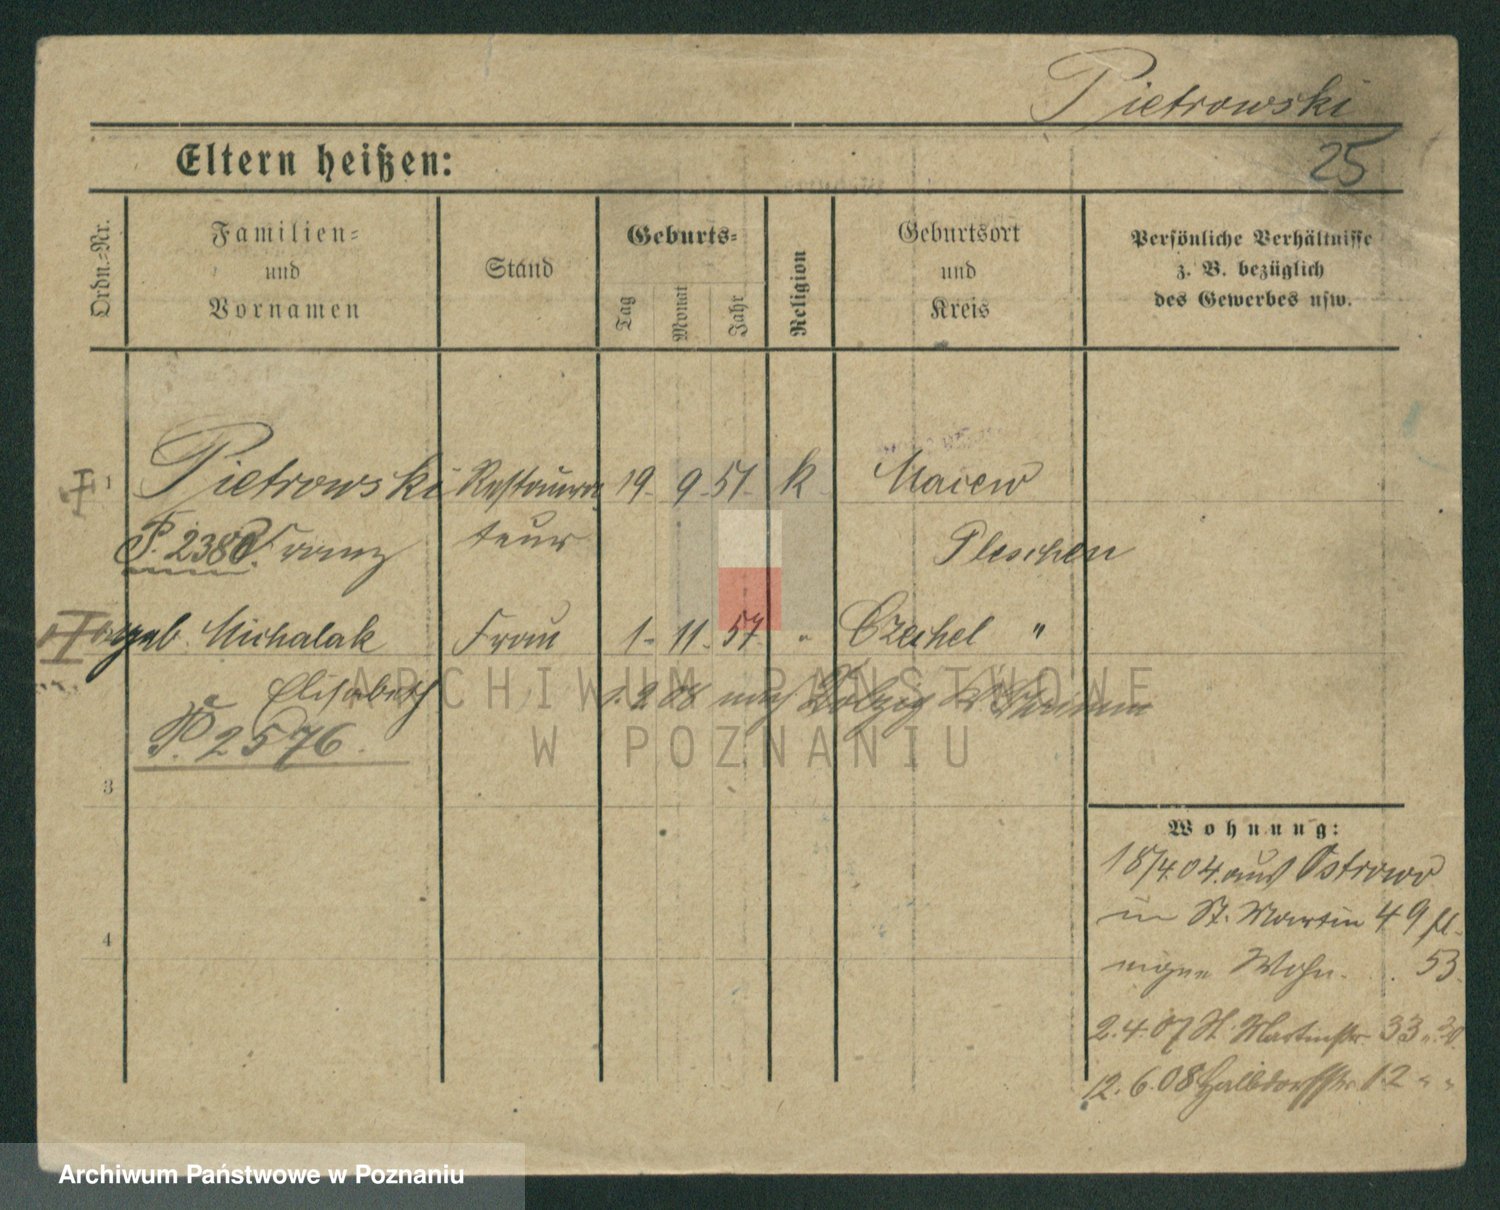 Pietrowski
25
Eltern heißen:
Ordn.-Nr.
Familien-
und
Vornamen
Stand
Geburts-
Tag
Monat
Jahr
Religion
Geburtsort
und
Kreis
Persönliche Verhältnisse
z. B. bezüglich
des Gewerbes usw.
I 1 Pietrowski Restaura 19. 9. 51. k Maiew
P. 2380. Franz teur Pleschen
II geb. Michalak Frau 1. 11. 57. " Czechel "
Elisabeth 1. 2 08 nach Dolzig Kr. Schrimm
P. 2576.
3
4
Wohnung:
18/4.04. aus Ostrowo
in St. Martin 49
eigene Wohn. 53.
2.4.07 St. Martinstr 33
12.6.08 Halbdorfstr 12 " "
ARCHIWUM PAŃSTWOWE
W POZNANIU
Archiwum Państwowe w Poznaniu